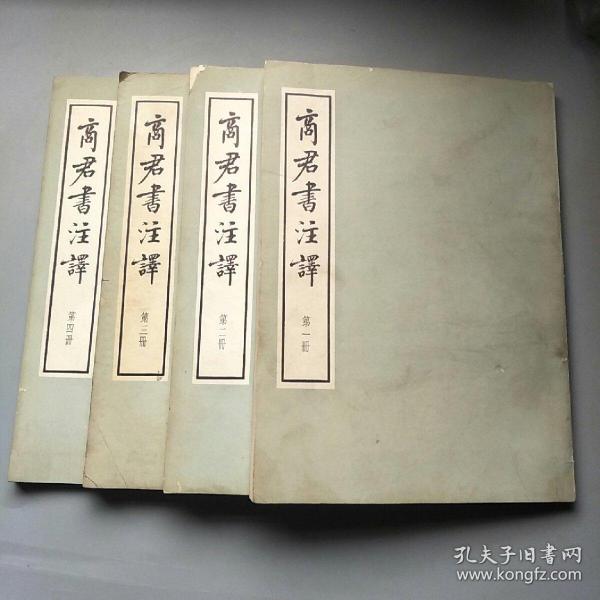 商君書注譯
第四冊
商君書注譯
第三冊
商君書注譯
第二冊
商君書注譯
第一冊
孔夫子旧書网
www.kongfz.com